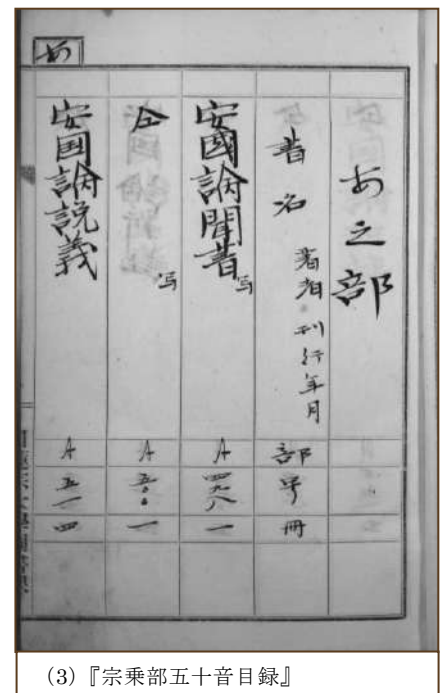 あ
あ之部
書名 著者・刊行年月 部 号 冊
安國論聞書 写 A 四九八 一
仝 写 A 五〇〇 一
安国論説義 A 五一 四
(3)『宗乗部五十音目録』